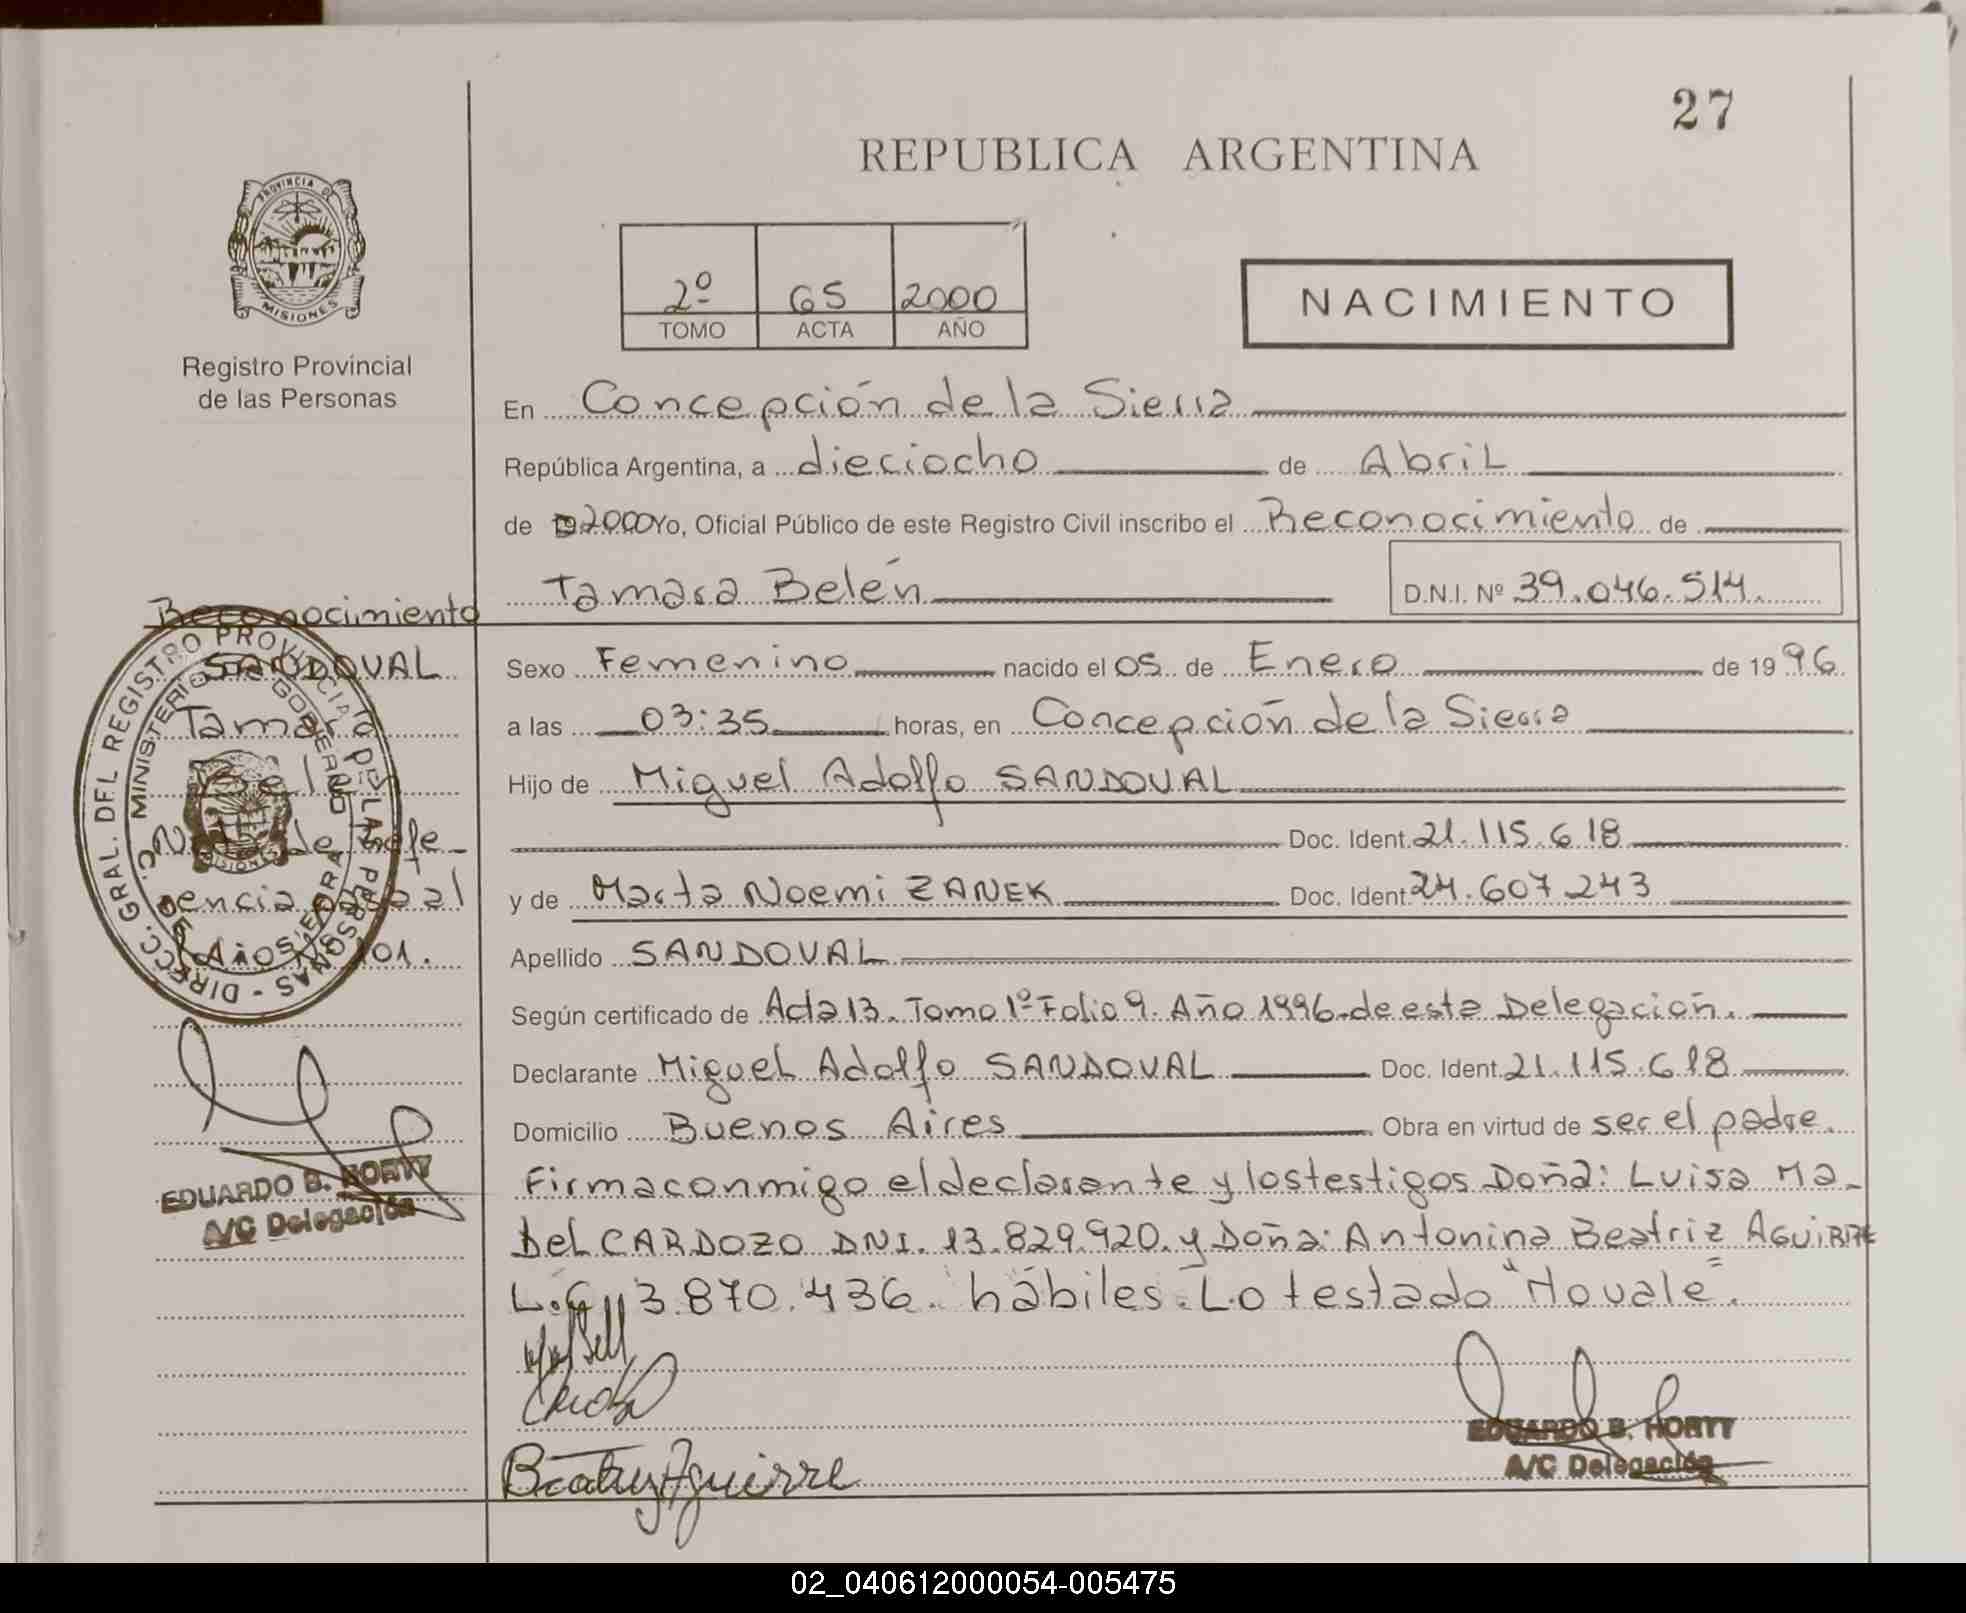 27
REPUBLICA ARGENTINA
PROVINCIA DE
MISIONES
Registro Provincial
de las Personas
2º 65 2000
TOMO ACTA AÑO
NACIMIENTO
En Concepción de la Sierra
República Argentina, a dieciocho de Abril
de 2000 Yo, Oficial Público de este Registro Civil inscribo el Reconocimiento de
Tamara Belén D.N.I. Nº 39.046.514.
Sexo Femenino nacido el 05 de Enero de 1996
a las 03:35 horas, en Concepción de la Sierra
Hijo de Miguel Adolfo SANDOVAL
Doc. Ident. 21.115.618
y de Marta Noemi ZANEK Doc. Ident. 24.607.243
Apellido SANDOVAL
Según certificado de Acta 13. Tomo 1º Folio 9. Año 1996 de esta Delegación.
Declarante Miguel Adolfo SANDOVAL Doc. Ident. 21.115.618
Domicilio Buenos Aires Obra en virtud de ser el padre.
Firma conmigo el declarante y los testigos Doña: Luisa Ma-
Del CARDOZO DNI. 13.829.920. y Doña: Antonina Beatriz AGUIRRE
L.C. 3.870.436. hábiles. Lo testado "No vale".
Beatriz Aguirre
EDUARDO B. HORTT
A/C Delegación
Reconocimiento
SANDOVAL
Tamara
Belén
DIRECC. GRAL. DEL REGISTRO PROVINCIAL DE LAS PERSONAS
MINISTERIO DE GOBIERNO
MISIONES
EDUARDO B. HORTT
A/C Delegación
02_040612000054-005475